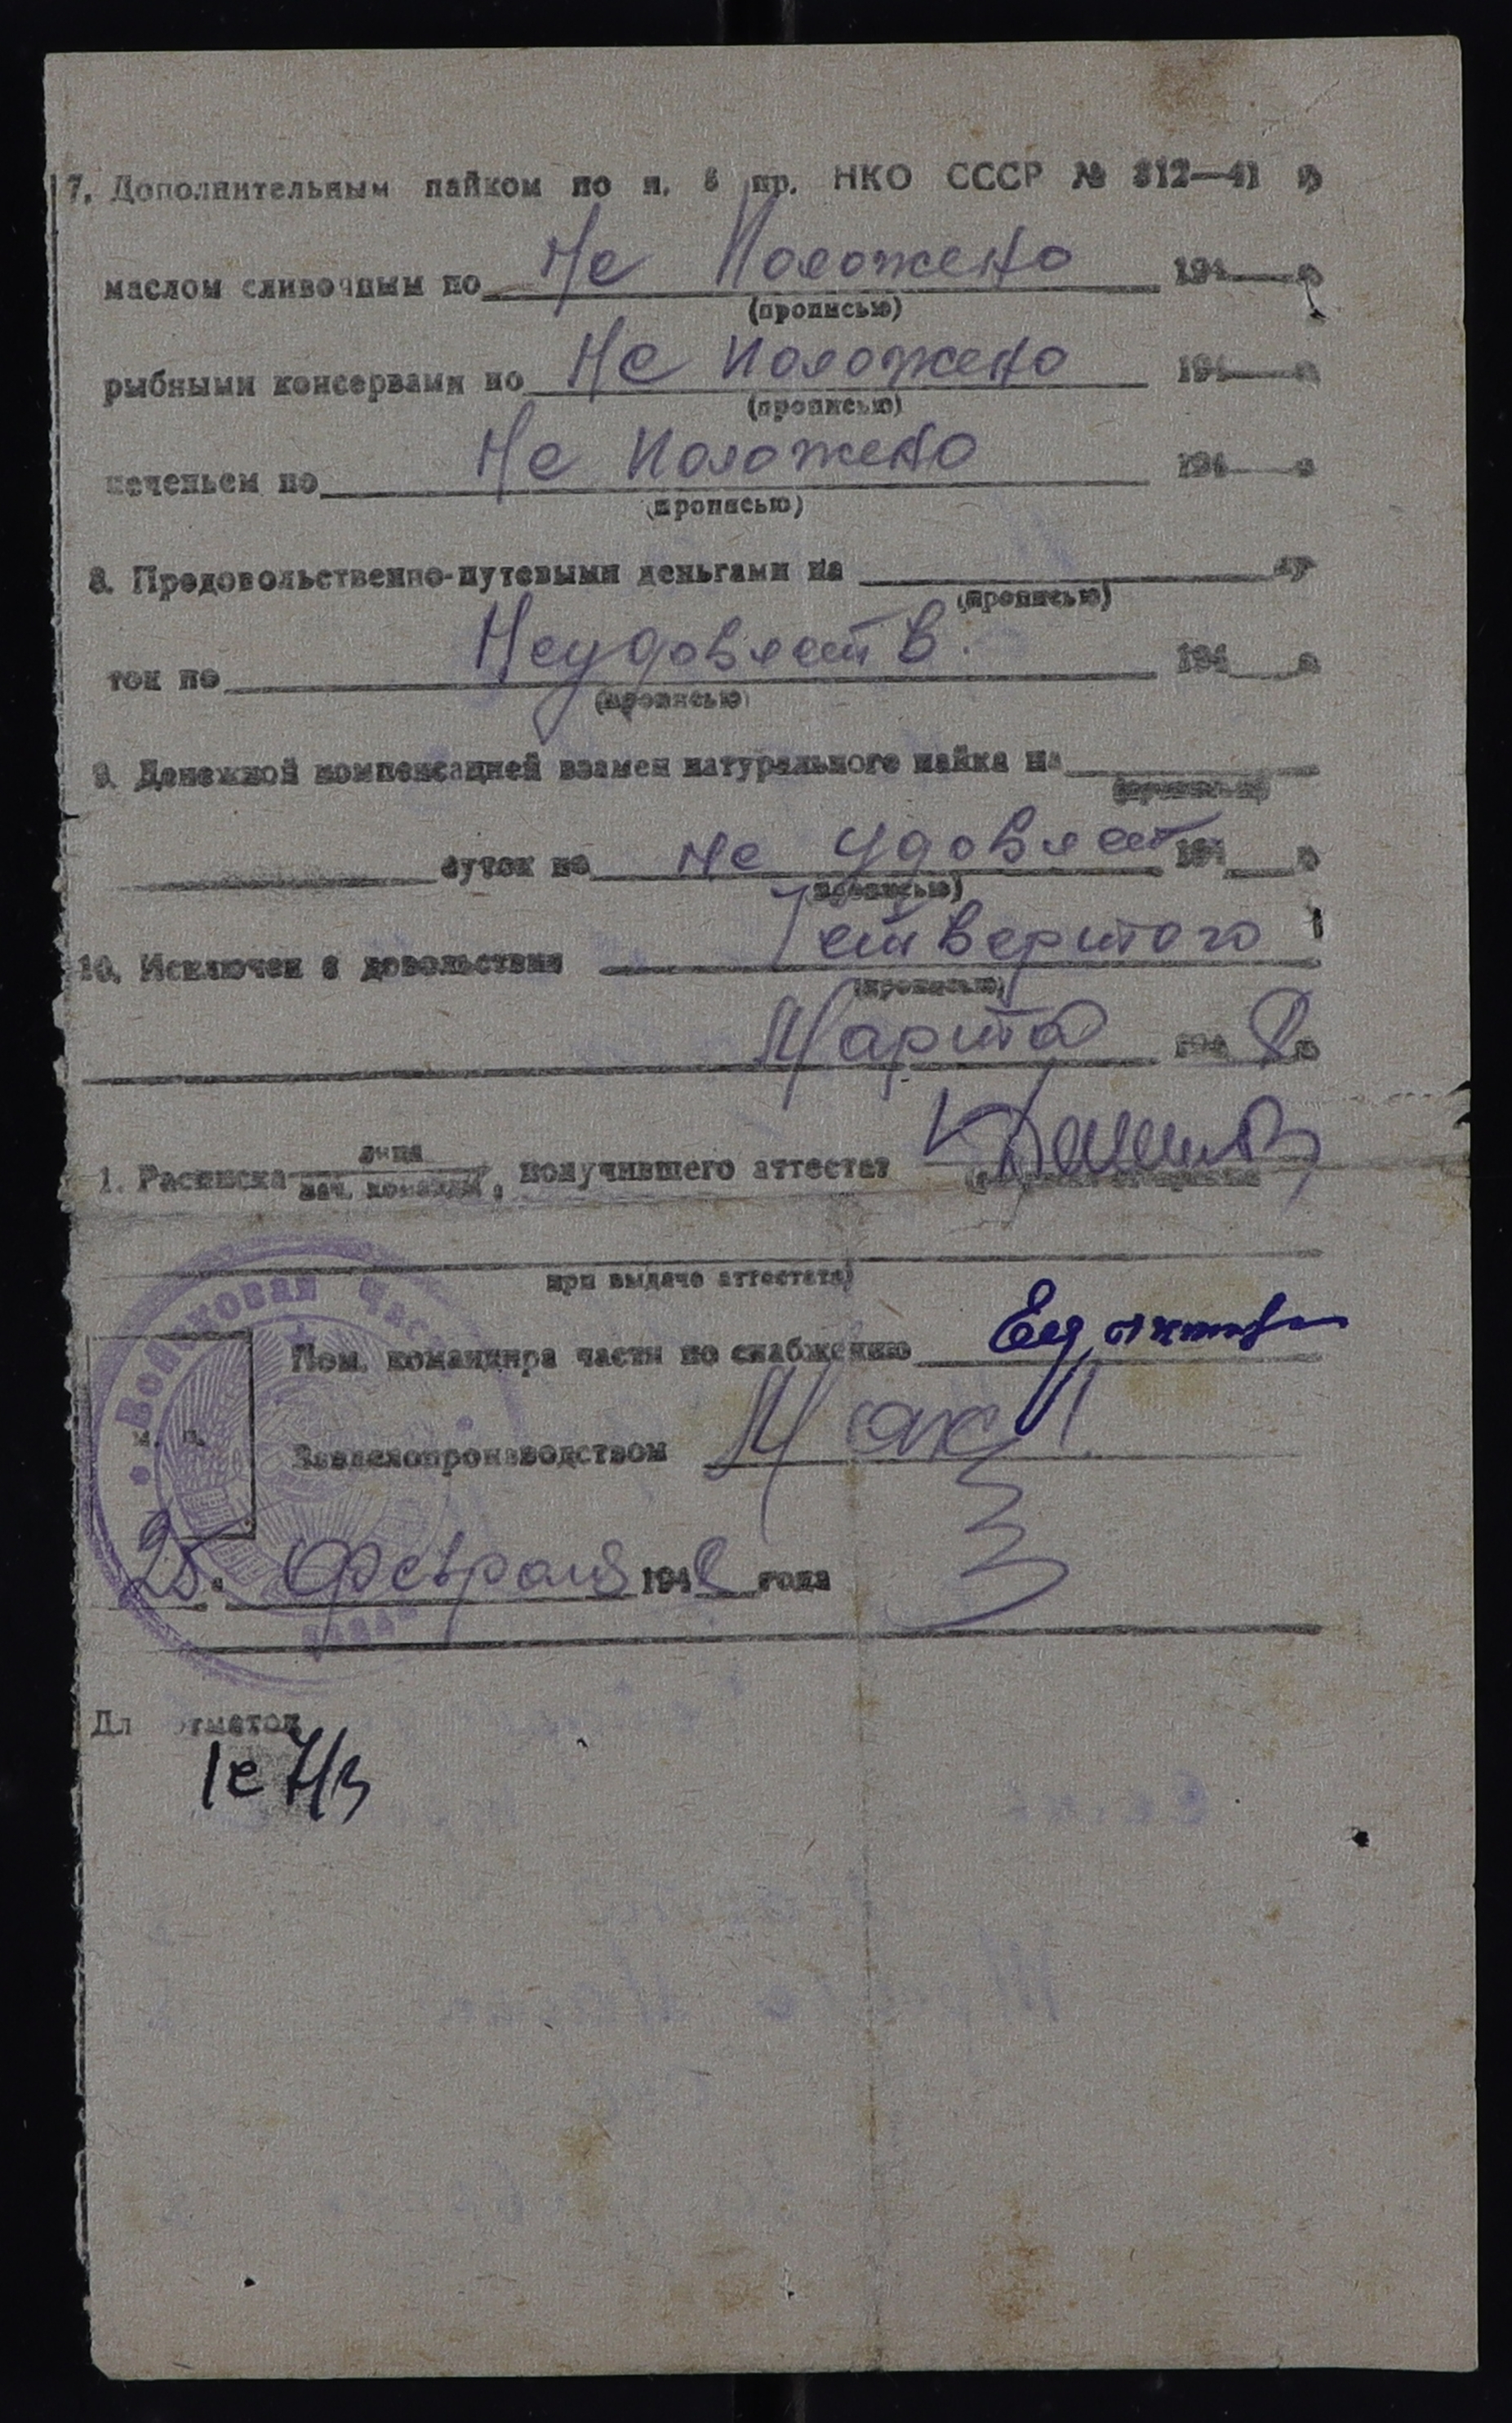 7. Дополнительным пайком по п. 8 пр. НКО СССР № 312—41 г
маслом сливочным по Не Положено 194 г
(прописью)
рыбными консервами по Не положено 194 г
(прописью)
печеньем по Не положено 194 г
(прописью)
8. Продовольственно-путевыми деньгами на су-
(прописью)
ток по Неудовлетв. 194 г
(прописью)
9. Денежной компенсацией взамен натурального пайка на
(прописью)
суток по не удовлет 194 г
(прописью)
10. Исключен с довольствия Четвертого
(прописью)
Марта 194 8 г
1. Расписка лица
нач. команды, получившего аттестат
при выдаче аттестата)
Войсковая часть
Пом. командира части по снабжению
м. п.
Завделопроизводством
25. Февраля 1948 года
Дл отметок